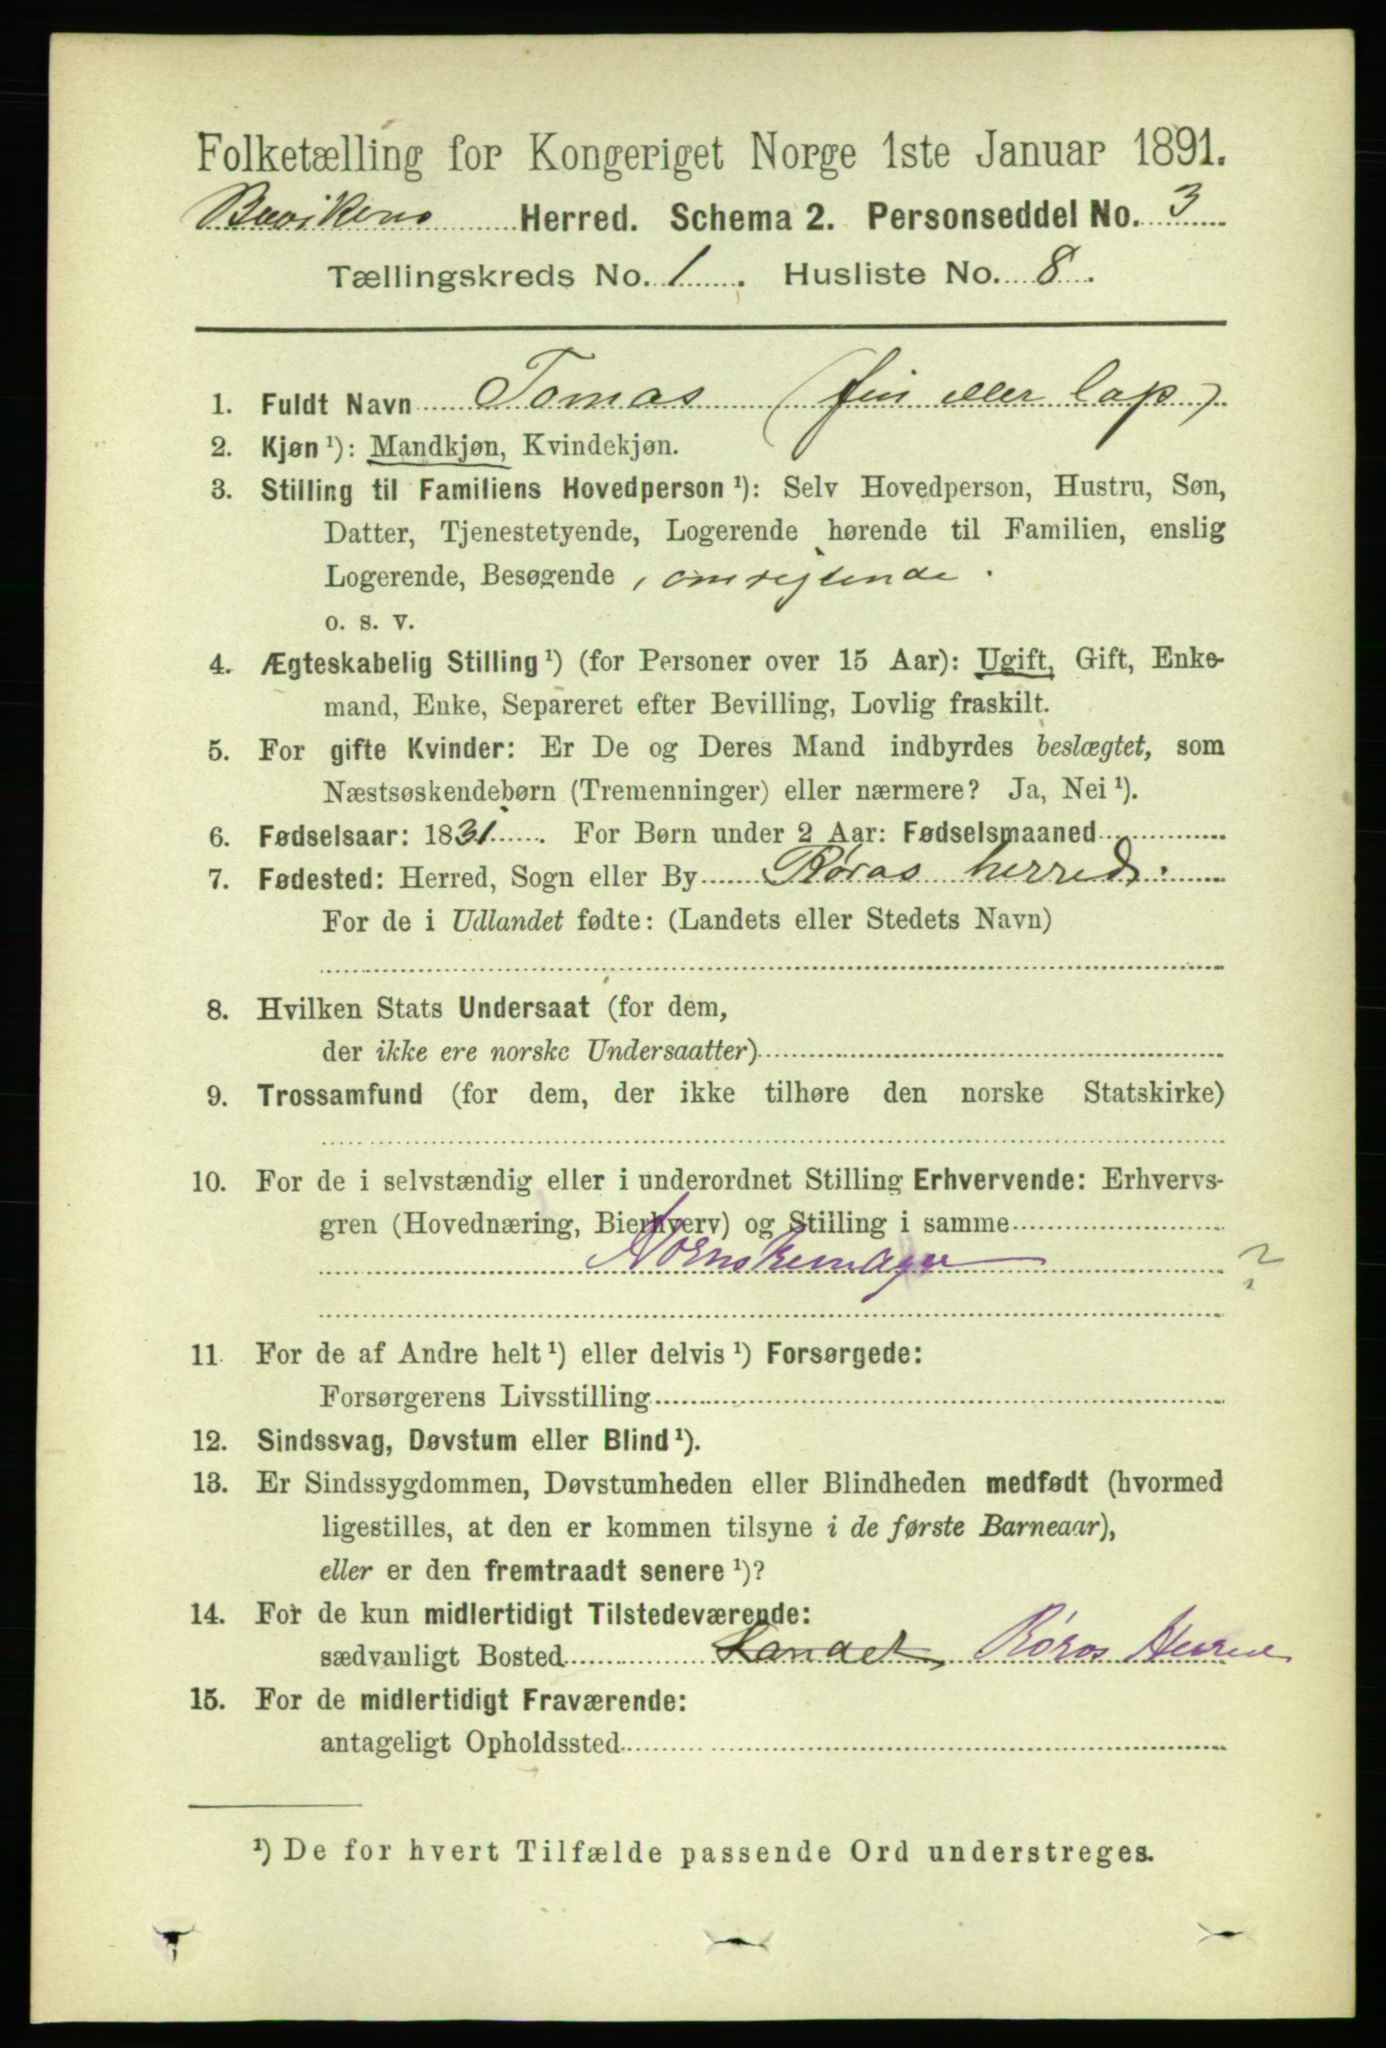 Folketælling for Kongeriget Norge 1ste Januar 1891.
Buvikens Herred. Schema 2. Personseddel No. 3
Tællingskreds No. 1. Husliste No. 8.
1. Fuldt Navn Tomas (fin eller lap)
2. Kjøn ¹): Mandkjøn, Kvindekjøn.
3. Stilling til Familiens Hovedperson ¹): Selv Hovedperson, Hustru, Søn,
Datter, Tjenestetyende, Logerende hørende til Familien, enslig
Logerende, Besøgende, omrejsende.
o. s. v.
4. Ægteskabelig Stilling ¹) (for Personer over 15 Aar): Ugift, Gift, Enke-
mand, Enke, Separeret efter Bevilling, Lovlig fraskilt.
5. For gifte Kvinder: Er De og Deres Mand indbyrdes beslægtet, som
Næstsøskendebørn (Tremenninger) eller nærmere? Ja, Nei ¹).
6. Fødselsaar: 1831. For Børn under 2 Aar: Fødselsmaaned
7. Fødested: Herred, Sogn eller By Røraas herred.
For de i Udlandet fødte: (Landets eller Stedets Navn)
8. Hvilken Stats Undersaat (for dem,
der ikke ere norske Undersaatter)
9. Trossamfund (for dem, der ikke tilhøre den norske Statskirke)
10. For de i selvstændig eller i underordnet Stilling Erhvervende: Erhvervs-
gren (Hovednæring, Bierhverv) og Stilling i samme
Hornskemager ?
11. For de af Andre helt ¹) eller delvis ¹) Forsørgede:
Forsørgerens Livsstilling
12. Sindssvag, Døvstum eller Blind ¹).
13. Er Sindssygdommen, Døvstumheden eller Blindheden medfødt (hvormed
ligestilles, at den er kommen tilsyne i de første Barneaar),
eller er den fremtraadt senere ¹)?
14. For de kun midlertidigt Tilstedeværende:
sædvanligt Bosted Landet, Røros Herred
15. For de midlertidigt Fraværende:
antageligt Opholdssted
¹) De for hvert Tilfælde passende Ord understreges.